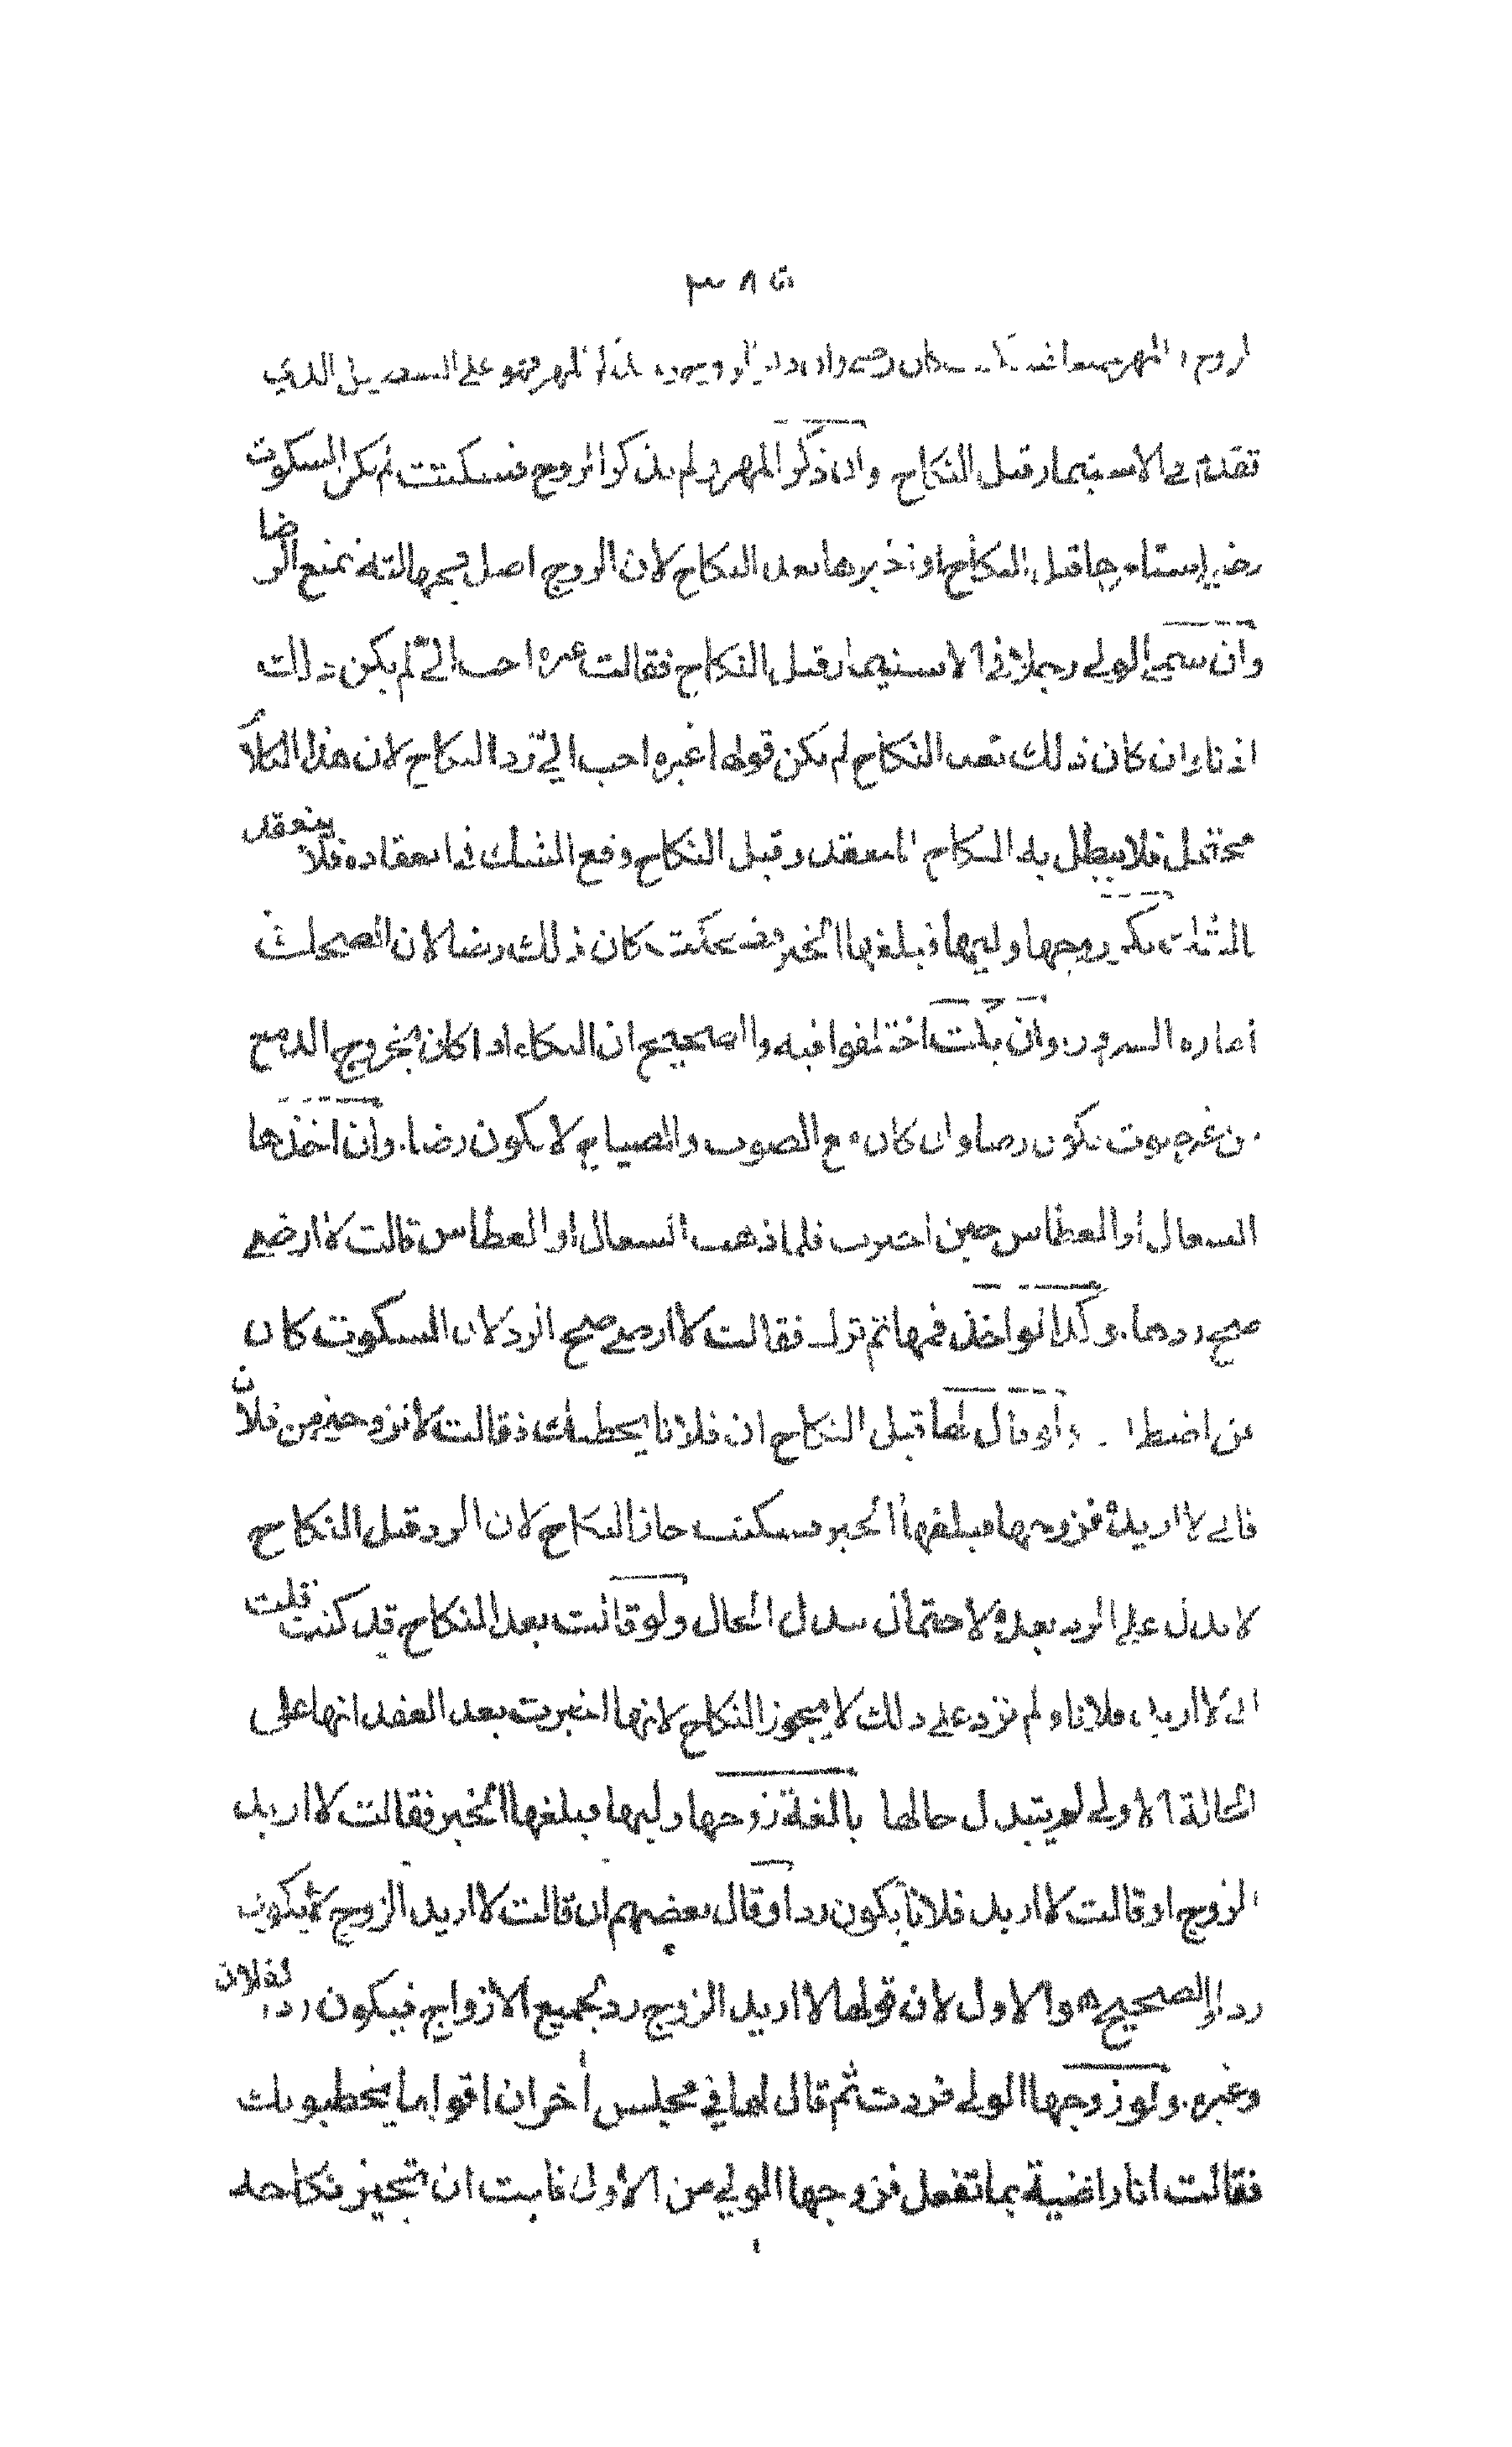 الزوج والمهر جميعا فسكتت كان رضا وان ذكر الزوج ولم يذكر المهر فهو على التفصيل الذي
تقدم في الاستيمار قبل النكاح وان ذكر المهر ولم يذكر الزوج فسكتت لم يكن السكوت
رضا استامرها قبل النكاح او اخبرها بعد النكاح لان الزوج اصل فجهالته تمنع الرضا
وان سمى الولي رجلا في الاستيمار قبل النكاح فقالت غيره احب الي لم يكن ذلك
اذنا وان كان ذلك بعد النكاح لم يكن قولها غيره احب الي رد النكاح لان هذا الكلام
محتمل فلا يبطل به النكاح المنعقد وقبل النكاح وقع الشك في انعقاده فلا ينعقد
بالشك بكر زوجها وليها فبلغها الخبر فضحكت كان ذلك رضا لان الضحك
امارة السرور وان بكت اختلفوا فيه والصحيح ان البكاء اذا كان بخروج الدمع
من غير صوت يكون رضا وان كان مع الصوت والصياح لا يكون رضا. وان اخذها
السعال او العطاس حين اخبرت فلما ذهب السعال او العطاس قالت لا ارضى
صح ردها. وكذا لو اخذ فمها ثم ترك فقالت لا ارضى صح الرد لان السكوت كان
عن اضطرار ولو قال لها قبل النكاح ان فلانا يخطبك فقالت لا تزوجني من فلان
فاني لا اريده فزوجها فبلغها الخبر فسكتت جاز النكاح لان الرد قبل النكاح
لا يدل على الرد بعده لاحتمال تبدل الحال ولو قالت بعد النكاح قد كنت قلت
اني لا اريد فلانا ولم تزد على ذلك لا يجوز النكاح لانها اخبرت بعد العقد انها على
الحالة الاولى لم يتبدل حالها بالغة زوجها وليها فبلغها الخبر فقالت لا اريد
الزوج او قالت لا اريد فلانا يكون ردا وقال بعضهم ان قالت لا اريد الزوج لا يكون
ردا والصحيح هو الاول لان قولها لا اريد الزوج رد لجميع الازواج فيكون ردا لفلان
وغيره. ولو زوجها الولي فردت ثم قال لها في مجلس اخر ان اقواما يخطبونك
فقالت انا راضية بما تفعل فزوجها الولي من الاول فابت ان تجيز نكاحه